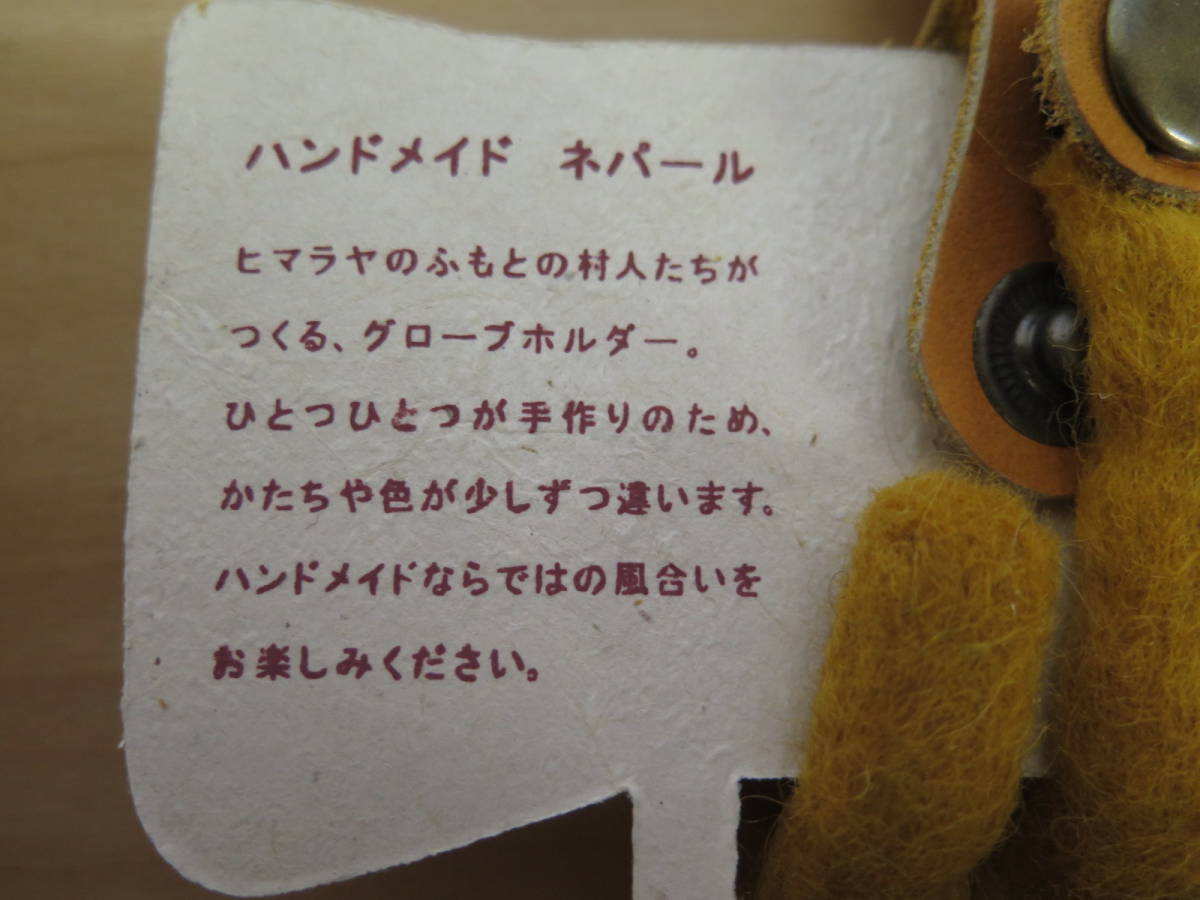 ハンドメイド　ネパール
ヒマラヤのふもとの村人たちが
つくる、グローブホルダー。
ひとつひとつが手作りのため、
かたちや色が少しずつ違います。
ハンドメイドならではの風合いを
お楽しみください。